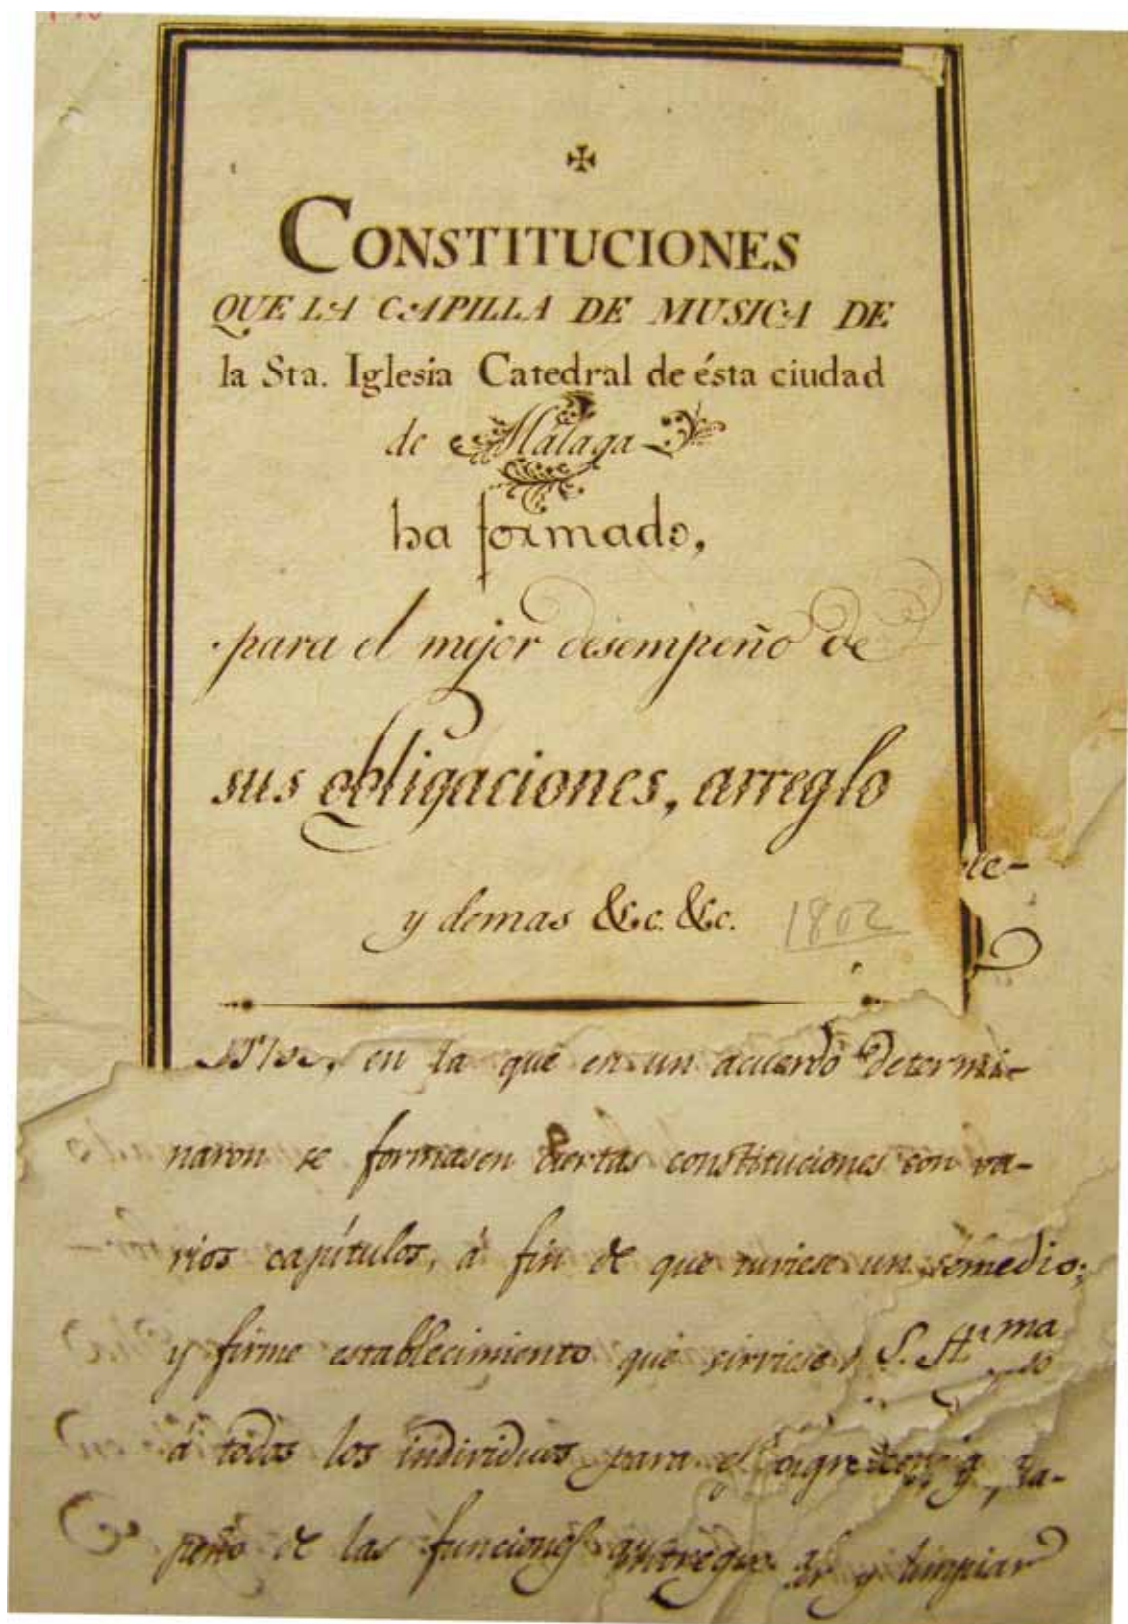 ✠
CONSTITUCIONES
QUE LA CAPILLA DE MUSICA DE
la Sta. Iglesia Catedral de ésta ciudad
de Málaga
ha formado,
para el mejor desempeño de
sus obligaciones, arreglo
y demas &c. &c. 1802
te-
en la que en un acuerdo determi-
naron se formasen ciertas constituciones con va-
rios capítulos, á fin de que tuviese un
y firme establecimiento que sirviese
á todos los individuos para el
peño de las funciones y limpiar